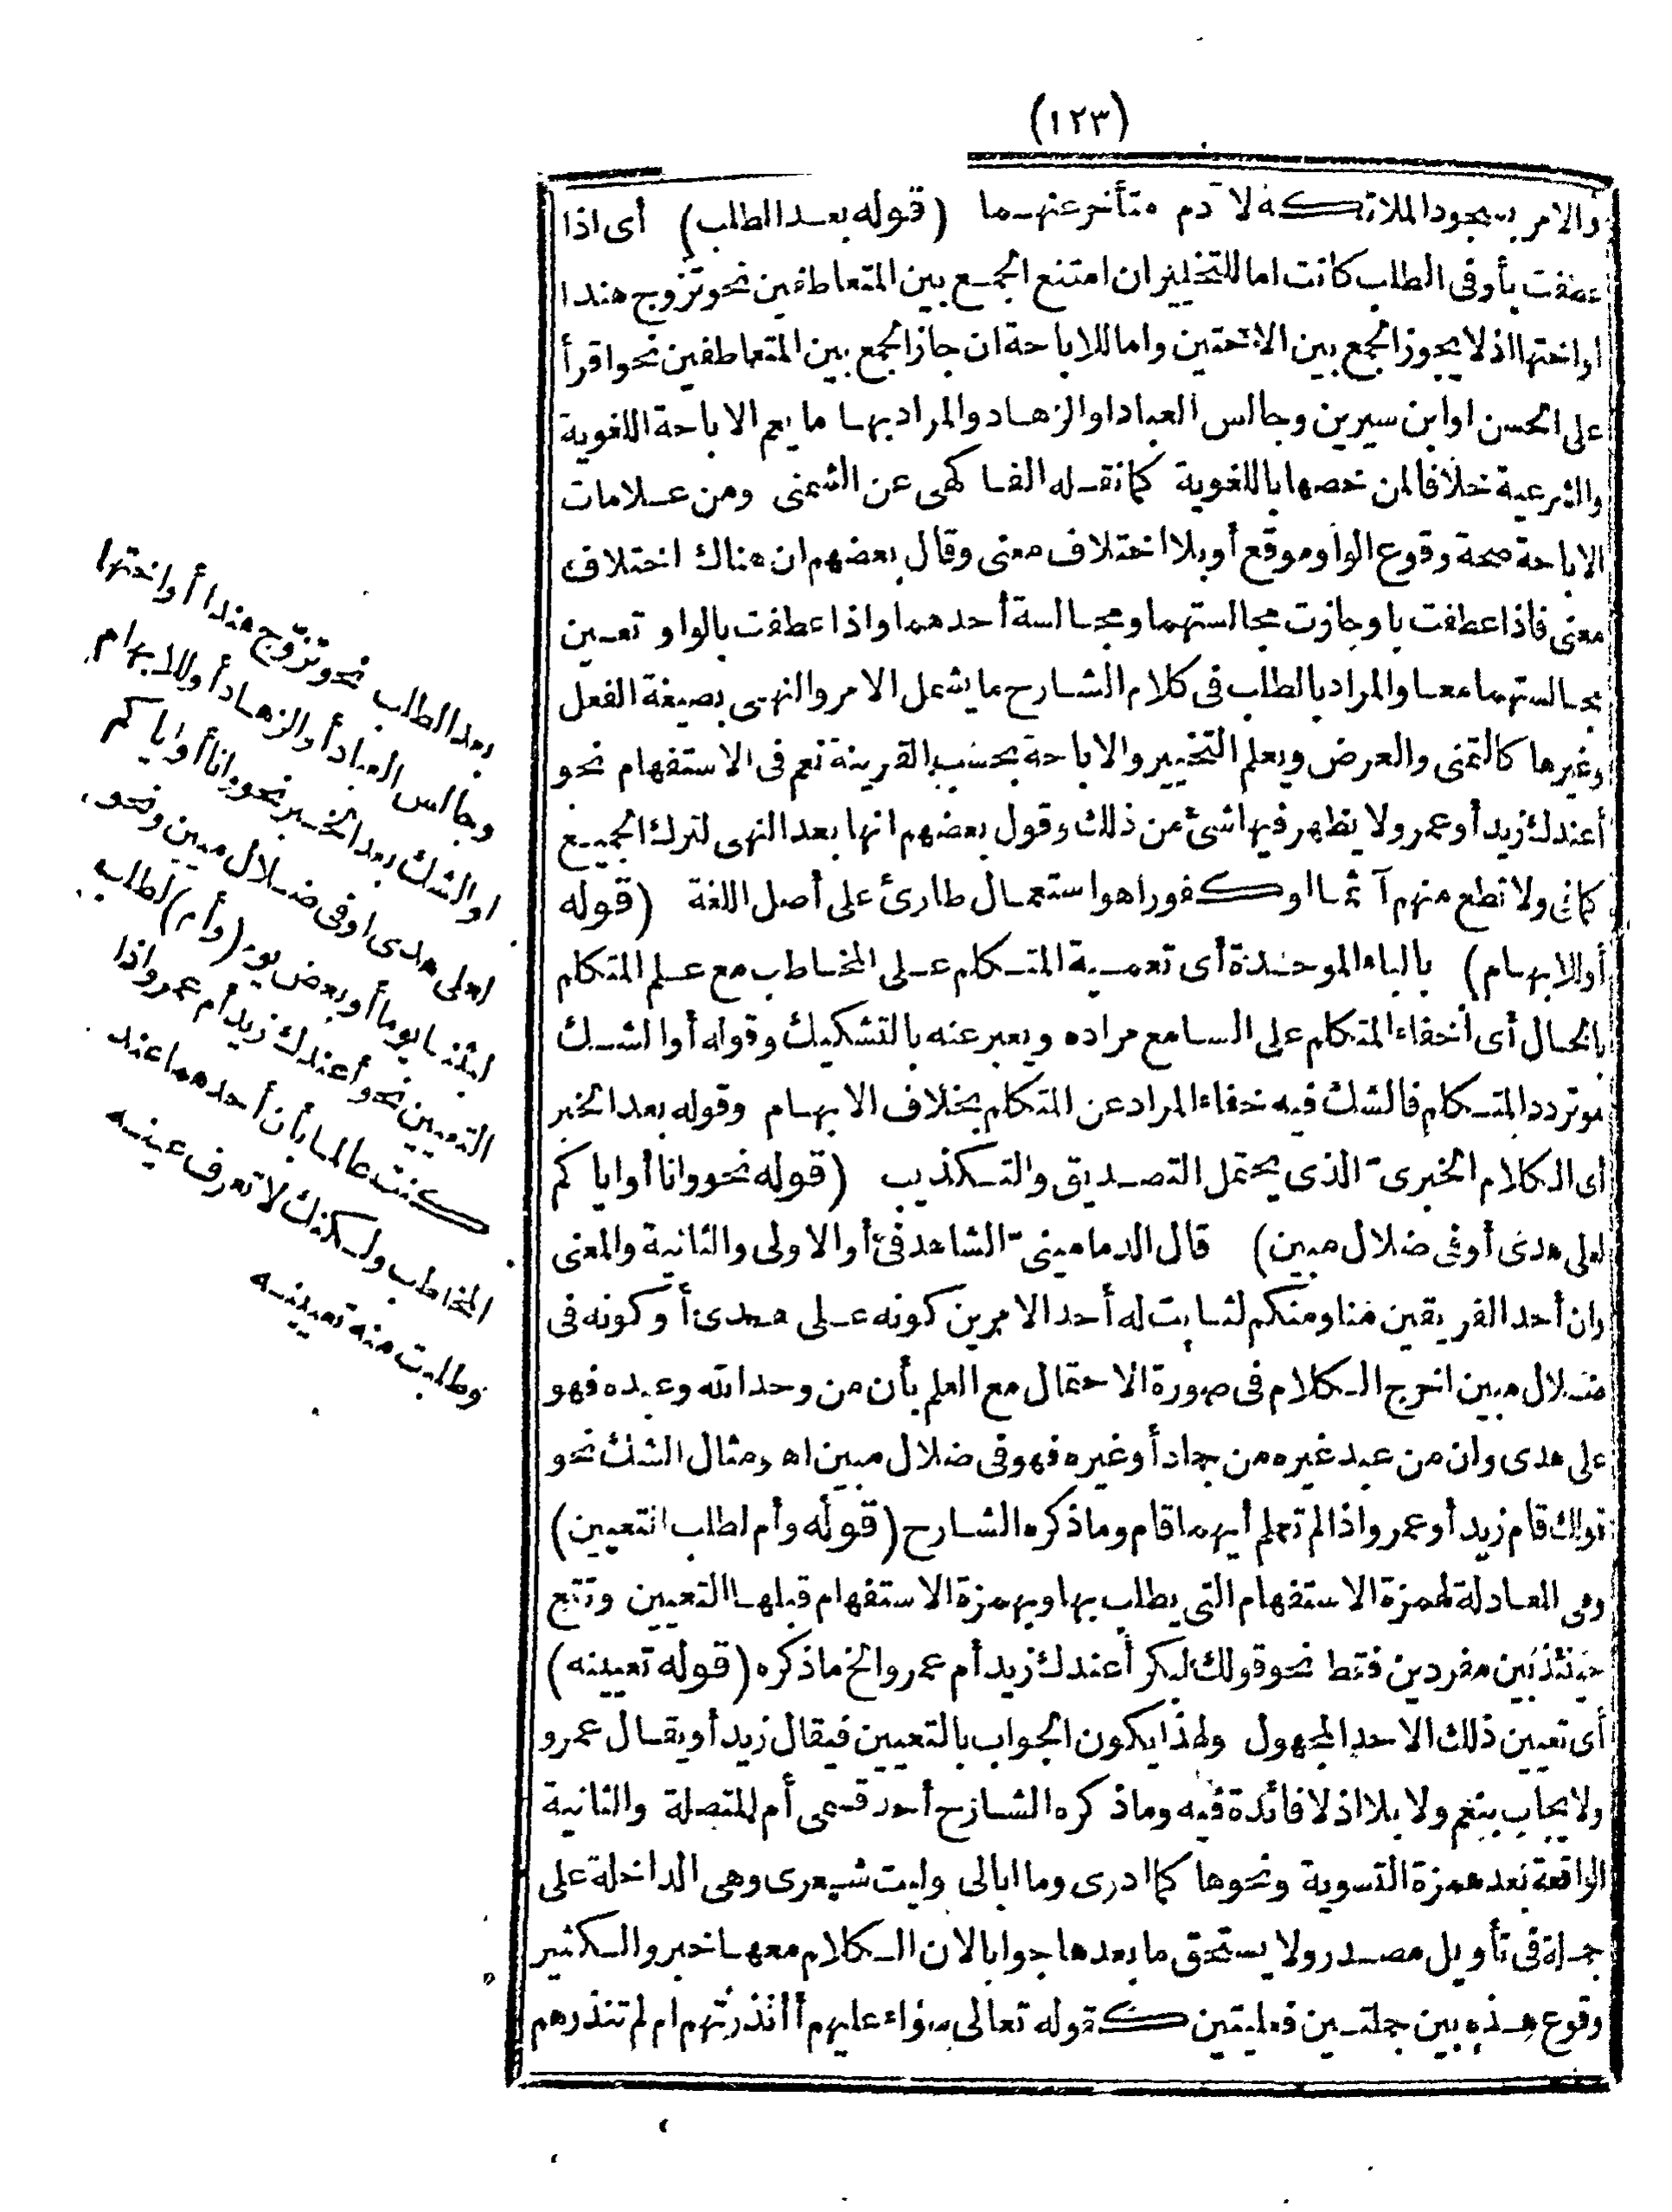 (١٢٣)
والامر بسجود الملائكة لا دم متأخر عنهما (قوله بعد الطلب) أى اذا
عطفت بأو فى الطلب كانت اما للتخيير ان امتنع الجمع بين المتعاطفين نحو تزوج هندا
او اختها اذ لا يجوز الجمع بين الاختين واما للاباحة ان جاز الجمع بين المتعاطفين نحو اقرأ
على الحسن او ابن سيرين وجالس العباد او الزهاد والمراد بها ما يعم الاباحة اللغوية
والشرعية خلافا لمن خصها باللغوية كما نقله الفاكهى عن الشمنى ومن علامات
الاباحة صحة وقوع الواو موقع أو بلا اختلاف معنى وقال بعضهم ان هناك اختلاف
معنى فاذا عطفت باو جازت مجالستهما ومجالسة أحدهما واذا عطفت بالواو تعين
مجالستهما معا والمراد بالطلب فى كلام الشارح ما يشمل الامر والنهى بصيغة الفعل
وغيرها كالتمنى والعرض ويعلم التخيير والاباحة بحسب القرينة نعم فى الاستفهام نحو
أعندك زيد أو عمرو لا يظهر فيها شئ من ذلك وقول بعضهم انها بعد النهى لترك الجميع
كما فى ولا تطع منهم آثما او كفورا هو استعمال طارئ على أصل اللغة (قوله
أو الابهام) بالباء الموحدة أى تعمية المتكلم على المخاطب مع علم المتكلم
بالحال أى اخفاء المتكلم على السامع مراده ويعبر عنه بالتشكيك وقوله أو الشك
هو تردد المتكلم فالشك فيه خفاء المراد عن المتكلم بخلاف الابهام وقوله بعد الخبر
أى الكلام الخبرى الذى يحتمل التصديق والتكذيب (قوله نحو وانا أو اياكم
لعلى هدى أو فى ضلال مبين) قال الدمامينى الشاهد فى أو الاولى والثانية والمعنى
وان أحد الفريقين منا ومنكم لثابت له أحد الامرين كونه على هدى أو كونه فى
ضلال مبين اخرج الكلام فى صورة الاحتمال مع العلم بأن من وحد الله وعبده فهو
على هدى وان من عبد غيره من جماد أو غيره فهو فى ضلال مبين اه ومثال الشك نحو
قولك قام زيد أو عمرو اذا لم تعلم أيهما قام وما ذكره الشارح (قوله وأم لطلب التعيين)
وهى المعادلة لهمزة الاستفهام التى يطلب بها وبهمزة الاستفهام قبلها التعيين وتقع
حينئذ بين مفردين فقط نحو قولك لبكر أعندك زيد أم عمرو الخ ما ذكره (قوله تعيينه)
أى تعيين ذلك الاحد المجهول ولهذا يكون الجواب بالتعيين فيقال زيد أو يقال عمرو
ولا يجاب بنعم ولا بلا اذ لا فائدة فيه وما ذكره الشارح أحد قسمى أم المتصلة والثانية
الواقعة بعد همزة التسوية ونحوها كما ادرى وما ابالى وليت شعرى وهى الداخلة على
جملة فى تأويل مصدر ولا يستحق ما بعدها جوابا لان الكلام معها خبر والكثير
وقوع هذه بين جملتين فعليتين كقوله تعالى سواء عليهم أأنذرتهم ام لم تنذرهم
بعد الطلب نحو تزوّج هندا أو اختها
وجالس العباد أو الزهاد أو للابهام
او الشك بعد الخبر نحو وانا أو اياكم
لعلى هدى او فى ضلال مبين ونحو
لبثنا يوما أو بعض يوم (وأم) لطلب
التعيين نحو أعندك زيد أم عمرو اذا
كنت عالما بأن أحدهما عند
المخاطب ولكنك لا تعرف عينه
وطلبت منه تعيينه